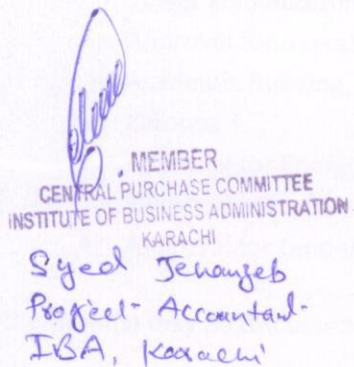 MEMBER
CENTRAL PURCHASE COMMITTEE
INSTITUTE OF BUSINESS ADMINISTRATION
KARACHI
Syed Jehanzeb
Project Accountant
IBA, Karachi